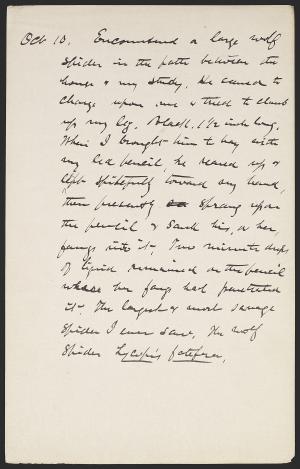 Oct 10. Encountered a large wolf
spider in the path between the
house & my study. He caused to
charge upon me & tried to climb
up my leg. Black, 1 1/2 inch long.
When I brought him to bay with
my led pencil, he reared up &
spitefully toward my hand,
then presently sprang upon
the pencil & sank his, or her,
fangs into it. Two minute drops
of liquid remained on the pencil
where her fang had penetrated
it. The largest & most savage
spider I ever saw. The wolf
spider Lycopis fatifera.